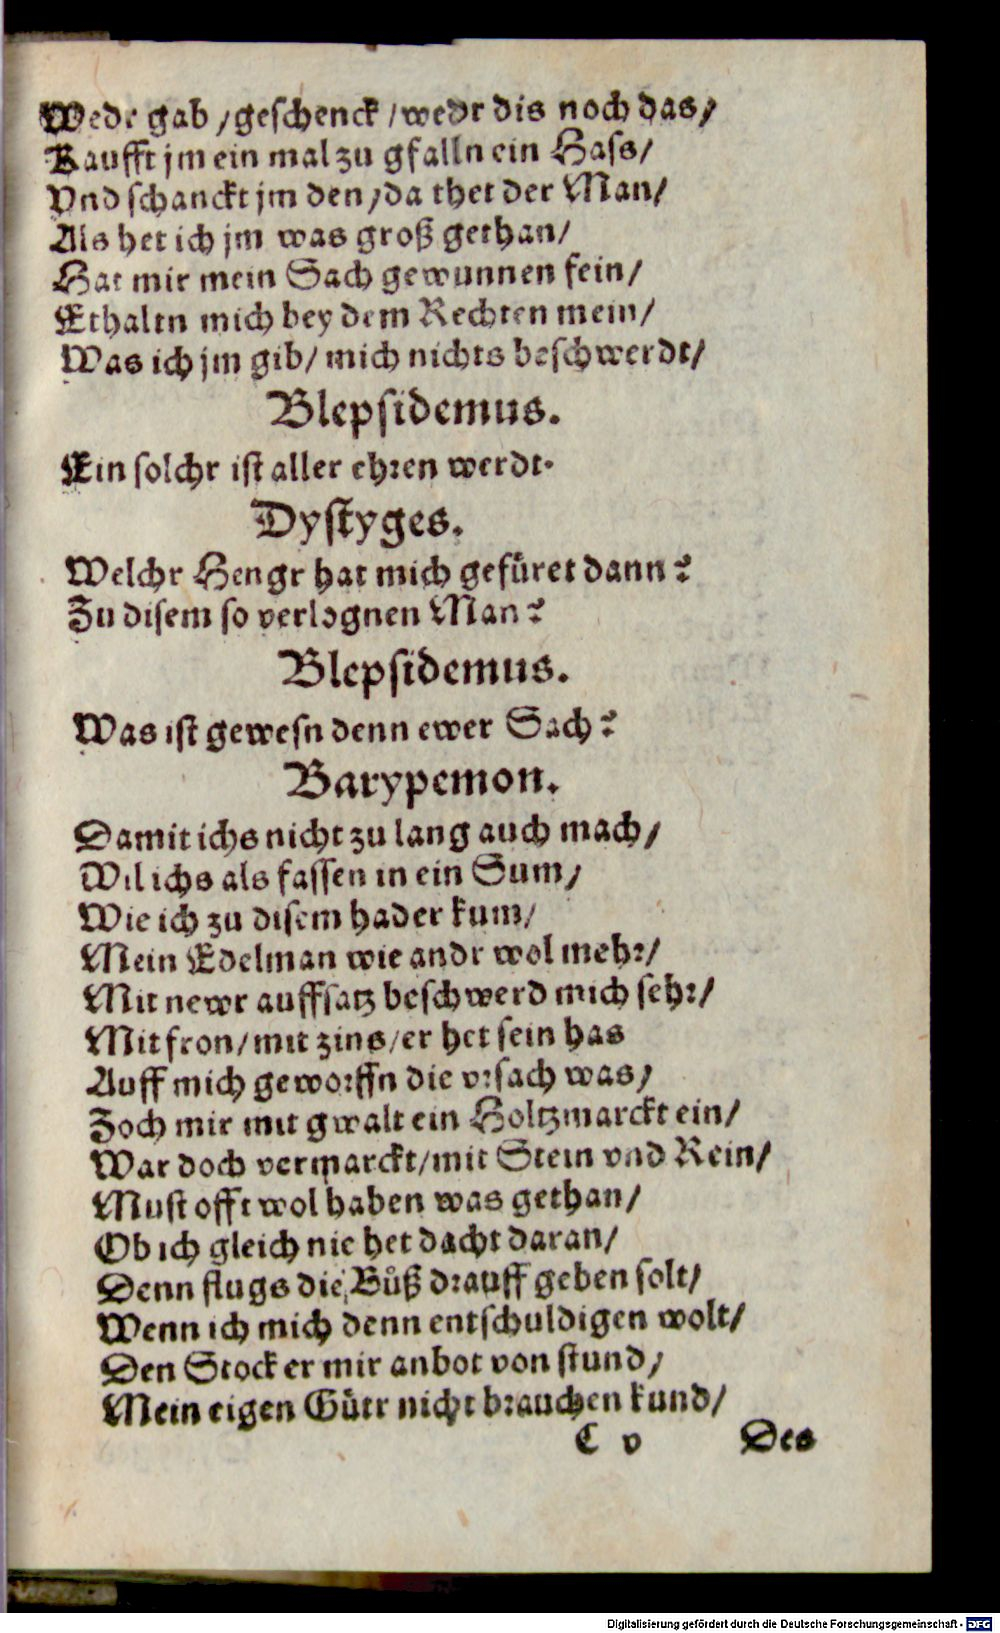 Wedr gab / geschenck / wedr dis noch das /
Kaufft jm ein mal zu gfalln ein Hass /
Vnd schanckt jm den / da thet der Man /
Als het ich jm was groß gethan /
Hat mir mein Sach gewunnen fein /
Ethaltn mich bey dem Rechten mein /
Was ich jm gib / mich nichts beschwerdt /
Blepsidemus.
Ein solchr ist aller ehren werdt.
Dystyges.
Welchr Hengr hat mich gefüret dann?
Zu disem so verlognen Man?
Blepsidemus.
Was ist gewesn denn ewer Sach?
Barypemon.
Damit ichs nicht zu lang auch mach /
Wil ichs als fassen in ein Sum /
Wie ich zu disem hader kum /
Mein Edelman wie andr wol mehr /
Mit newr auffsatz beschwerd mich sehr /
Mit fron / mit zins / er het sein has
Auff mich geworffn die vrsach was /
Zoch mir mit gwalt ein Holtzmarckt ein /
War doch vermarckt / mit Stein vnd Rein /
Must offt wol haben was gethan /
Ob ich gleich nie het dacht daran /
Denn flugs die Bůß drauff geben solt /
Wenn ich mich denn entschuldigen wolt /
Den Stock er mir anbot von stund /
Mein eigen Gütr nicht brauchen kund /
C v Des
Digitalisierung gefördert durch die Deutsche Forschungsgemeinschaft - DFG